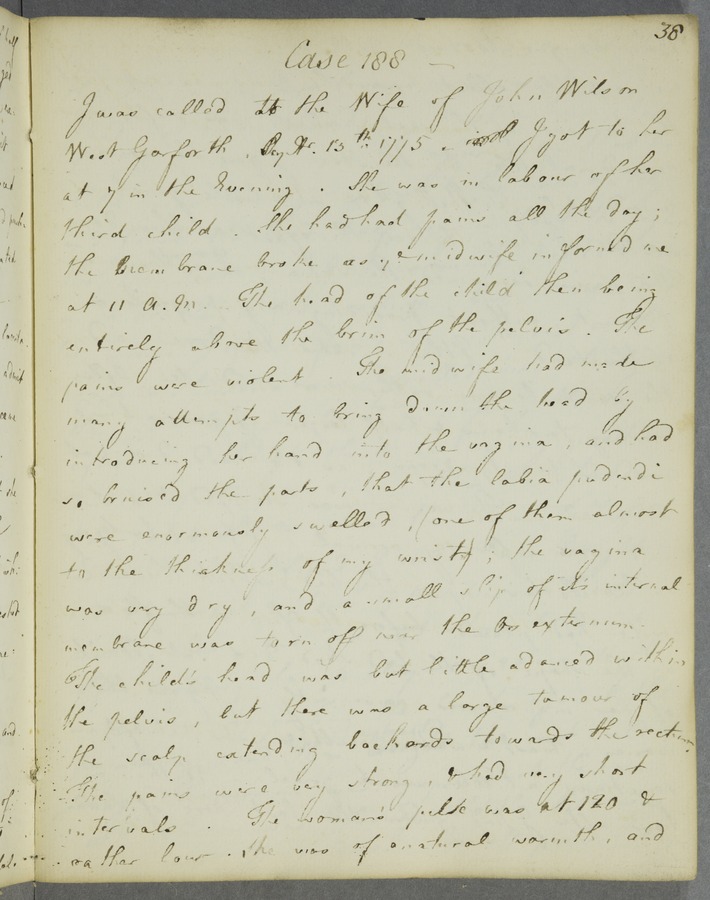 38
Case 188 —
I was called to the Wife of John Wilson
West Garforth, Sept. 13th. 1775. I got to her
at 7 in the Evening. She was in labour of her
third child. She had had pains all the day;
the membrane broke as ye midwife informed me
at 11 a.m. The head of the child then being
entirely above the brim of the pelvis. The
pains were violent. The midwife had made
many attempts to bring down the head by
introducing her hand into the vagina, and had
so bruised the parts, that the labia pudendi
were enormously swelled, (one of them almost
to the thickness of my wrist); the vagina
was very dry, and a small slip of its internal
membrane was torn off near the Os externum.
The child's head was but little adanced within
the pelvis, but there was a large tumour of
the scalp extending backards towards the rectum.
The pains were very strong, & had very short
intervals. The woman's pulse was at 120 &
rather low. She was of a natural warmth, and